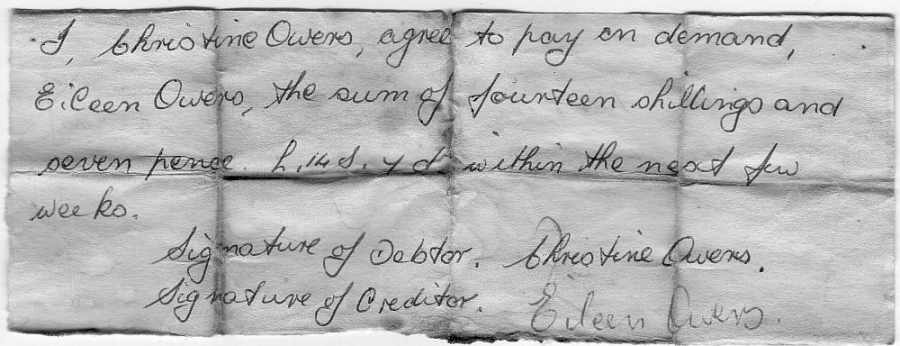 I, Christine Owers, agree to pay on demand,
Eileen Owers, the sum of fourteen shillings and
seven pence. £,14s, 7d within the next few
weeks.
Signature of Debtor. Christine Owers.
Signature of Creditor. Eileen Owers.